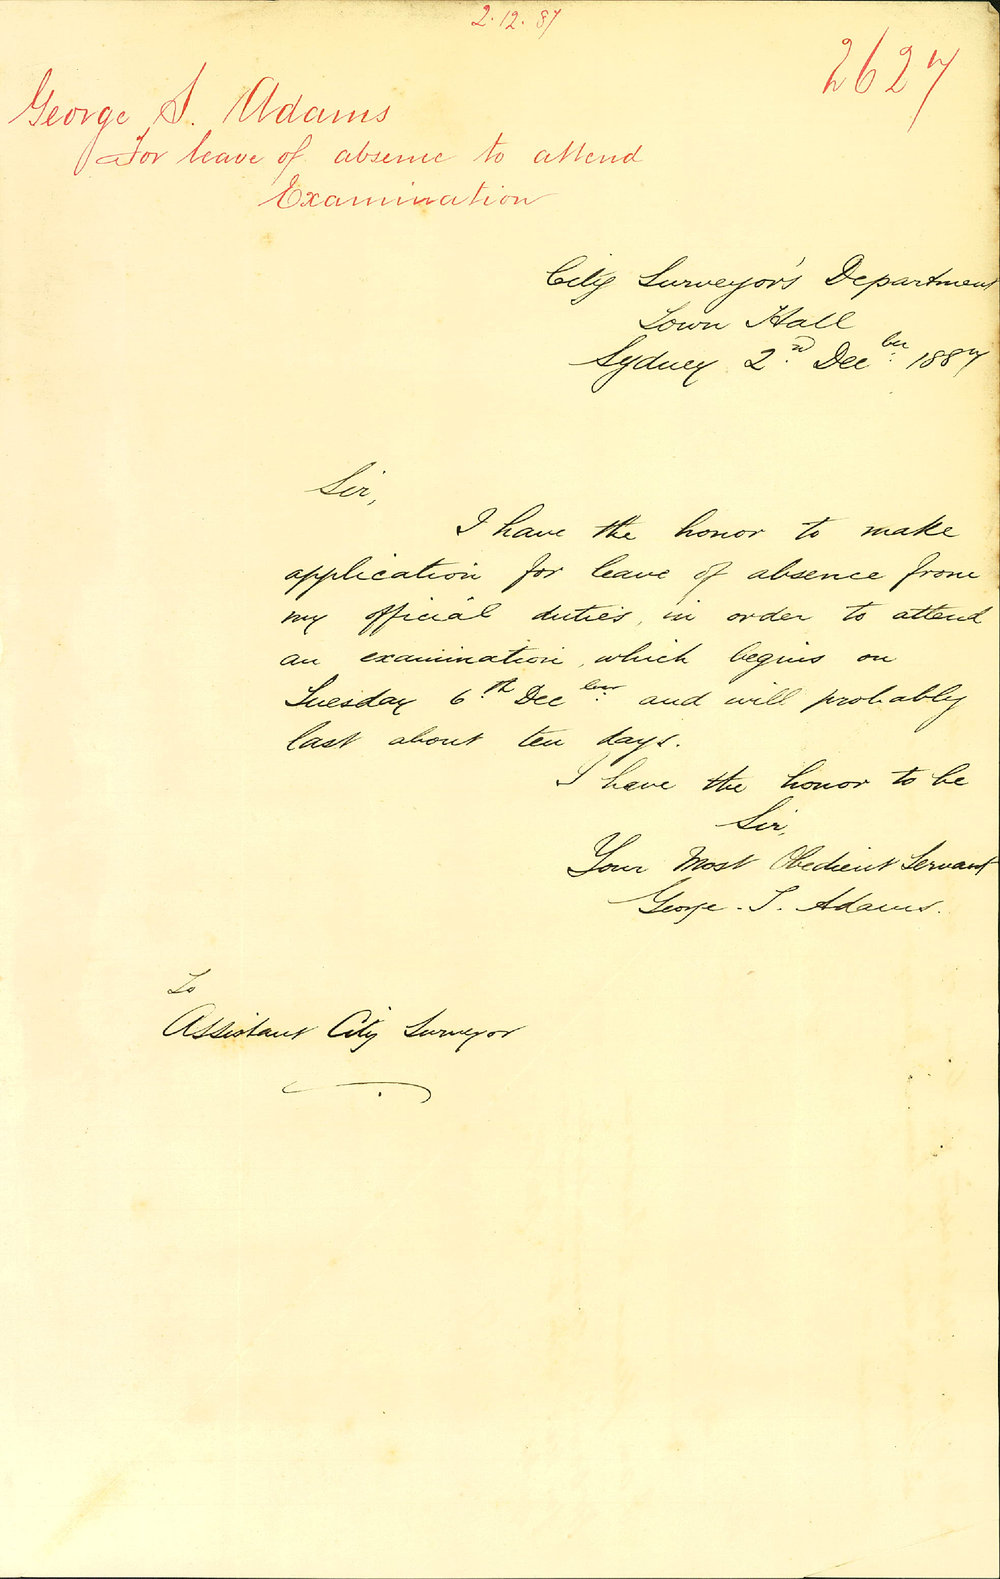 2.12.87
2627
George S. Adams
For leave of absence to attend
Examination
City Surveyor's Department
Town Hall
Sydney 2nd. Decber. 1887
Sir,
I have the honor to make
application for leave of absence from
my official duties, in order to attend
an examination, which begins on
Tuesday 6th. Decber. and will probably
last about ten days.
I have the honor to be
Sir,
Your Most Obedient Servant
George. S. Adams.
To
Assistant City Surveyor